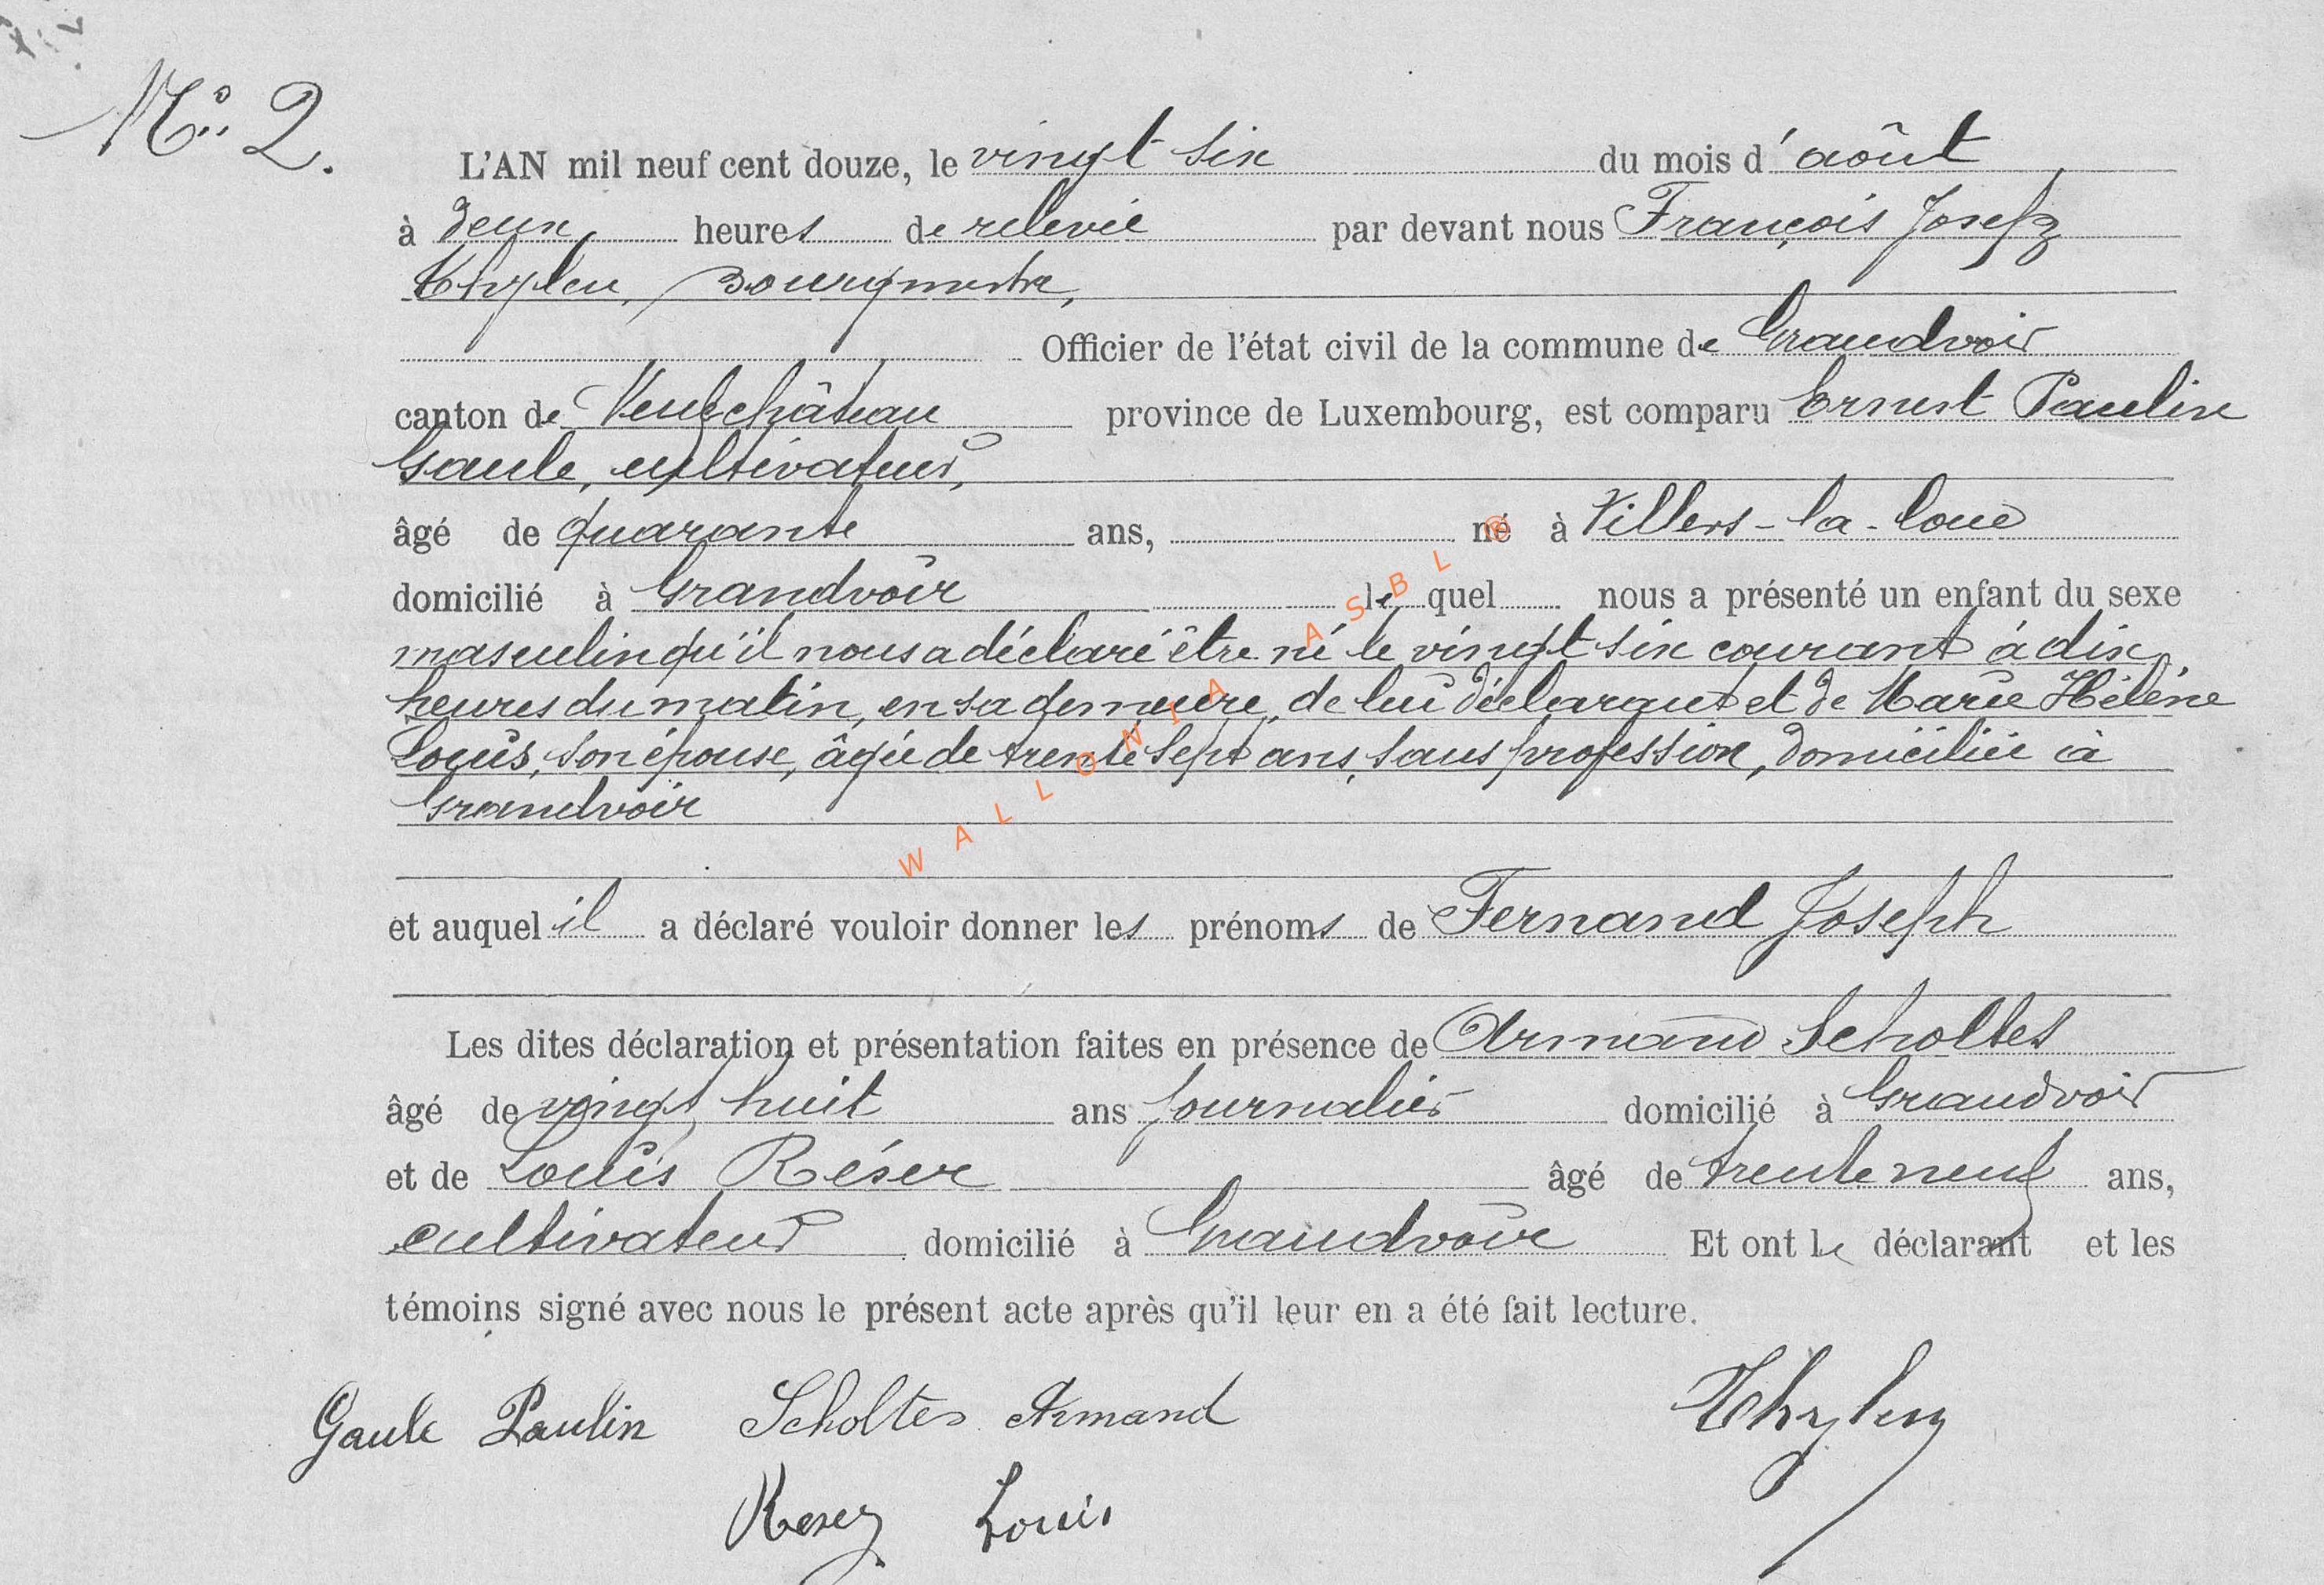 No 2.
L'AN mil neuf cent douze, le vingt six du mois d'août
à deux heures de relevée par devant nous François Josef
Thylen, Bourgmestre,
Officier de l'état civil de la commune de Grandvoir
canton de Neufchâteau province de Luxembourg, est comparu Ernest Paulin
Gaule, cultivateur,
âgé de quarante ans, né à Villers-la-loue
domicilié à Grandvoir lequel nous a présenté un enfant du sexe
masculin qu'il nous a déclaré être né le vingt six courant à dix
heures du matin, en sa demeure, de lui déclarant et de Marie Hélène
Louis, son épouse, âgée de trente sept ans, sans profession, domiciliée à
Grandvoir
et auquel il a déclaré vouloir donner les prénoms de Fernand Joseph
Les dites déclaration et présentation faites en présence de Armand Scholtes
âgé de vingt huit ans journalier domicilié à Grandvoir
et de Louis Réser âgé de trente neuf ans,
cultivateur domicilié à Grandvoir Et ont le déclarant et les
témoins signé avec nous le présent acte après qu'il leur en a été fait lecture.
Gaule Paulin Scholtes Armand Thylen
Reser Louis
WALLONIA ASBL ®